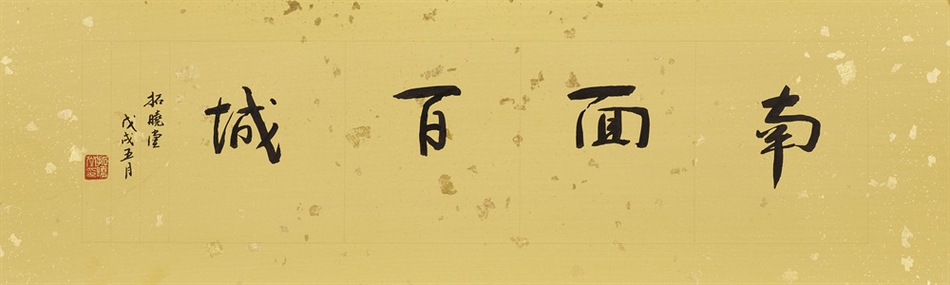 南面百城
拓曉堂
戊戌五月